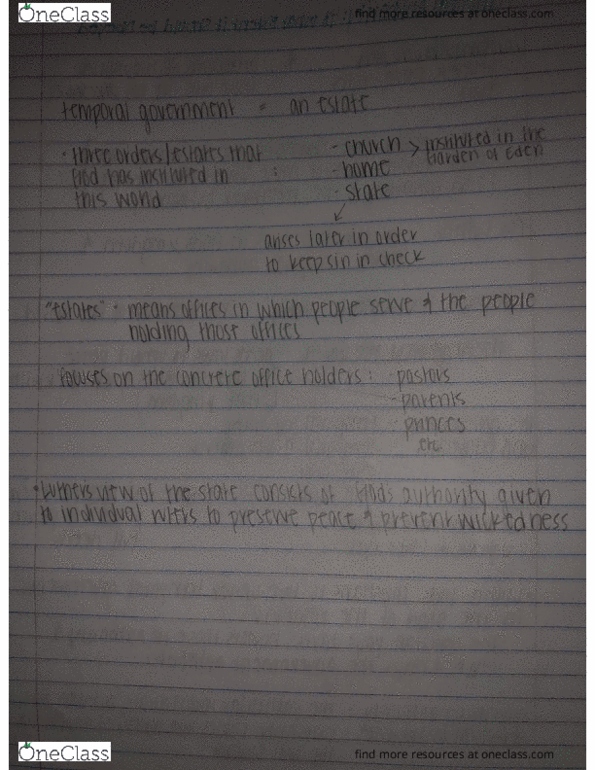 OneClass
find more resources at oneclass.com
temporal government = an estate
· three orders/estates that
God has instituted in :
this world
- church > instituted in the
Garden of Eden
- home
- state
arises later in order
to keep sin in check
"estates" · means offices in which people serve & the people
holding those offices
focuses on the concrete office holders : - pastors
- parents
- princes
· Luthers view of the state consists of Gods authority given
to individual rulers to preserve peace & prevent wickedness
OneClass
find more resources at oneclass.com